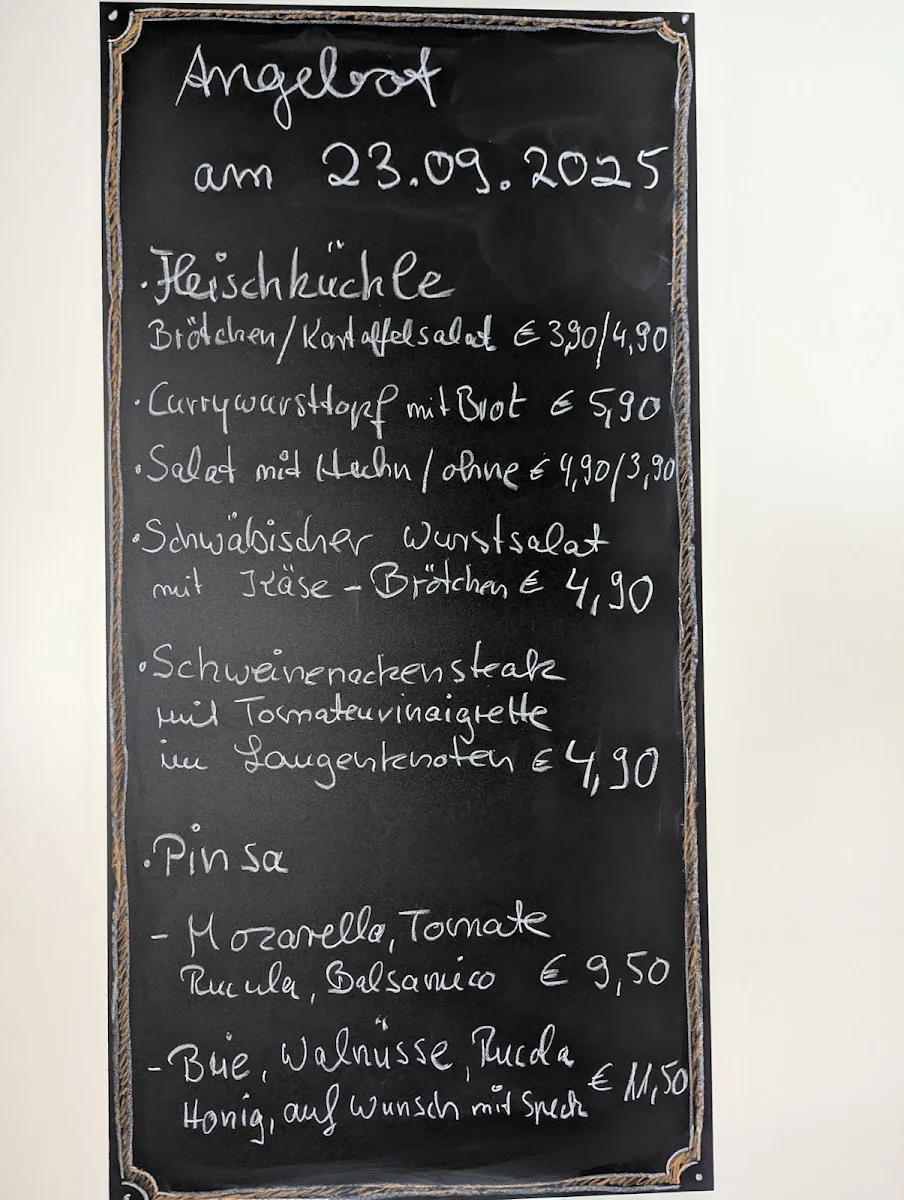 Angebot
am 23.09.2025
· Fleischküchle
Brötchen/Kartoffelsalat € 3,90/4,90
· Currywursttopf mit Brot € 5,90
· Salat mit Huhn/ohne € 4,90/3,90
· Schwäbischer Wurstsalat
mit Käse - Brötchen € 4,90
· Schweinenackensteak
mit Tomatenvinaigrette
im Laugenknoten € 4,90
· Pinsa
- Mozarella, Tomate
Rucula, Balsamico € 9,50
- Brie, Walnüsse, Rucola
Honig, auf Wunsch mit Speck € 11,50